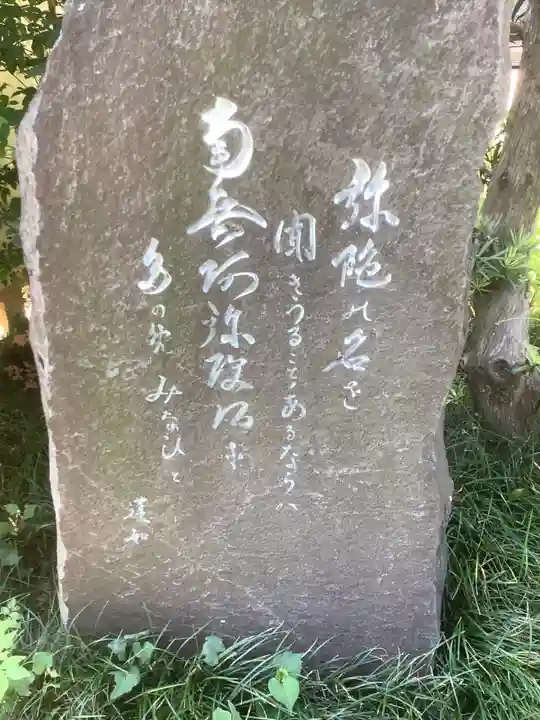 弥陀の名を
聞きうることのあるならハ
南無阿弥陀仏と
たのめみなひと
蓮如